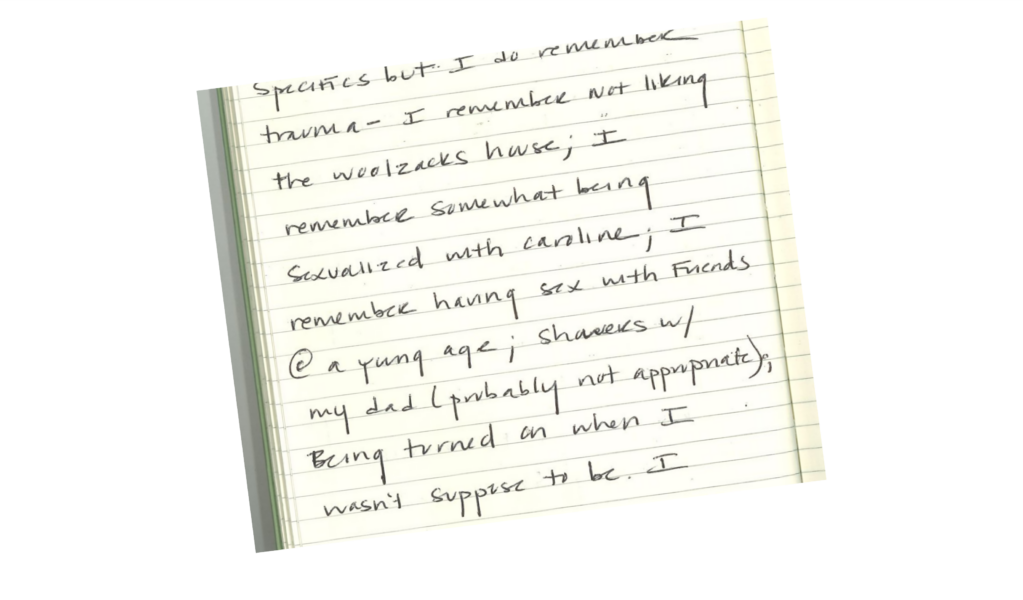 specifics but I do remember
trauma - I remember not liking
the woolzacks house; I
remember somewhat being
sexualized with caroline; I
remember having sex with Friends
@ a young age; showers w/
my dad (probably not appropriate);
Being turned on when I
wasn't suppose to be. I